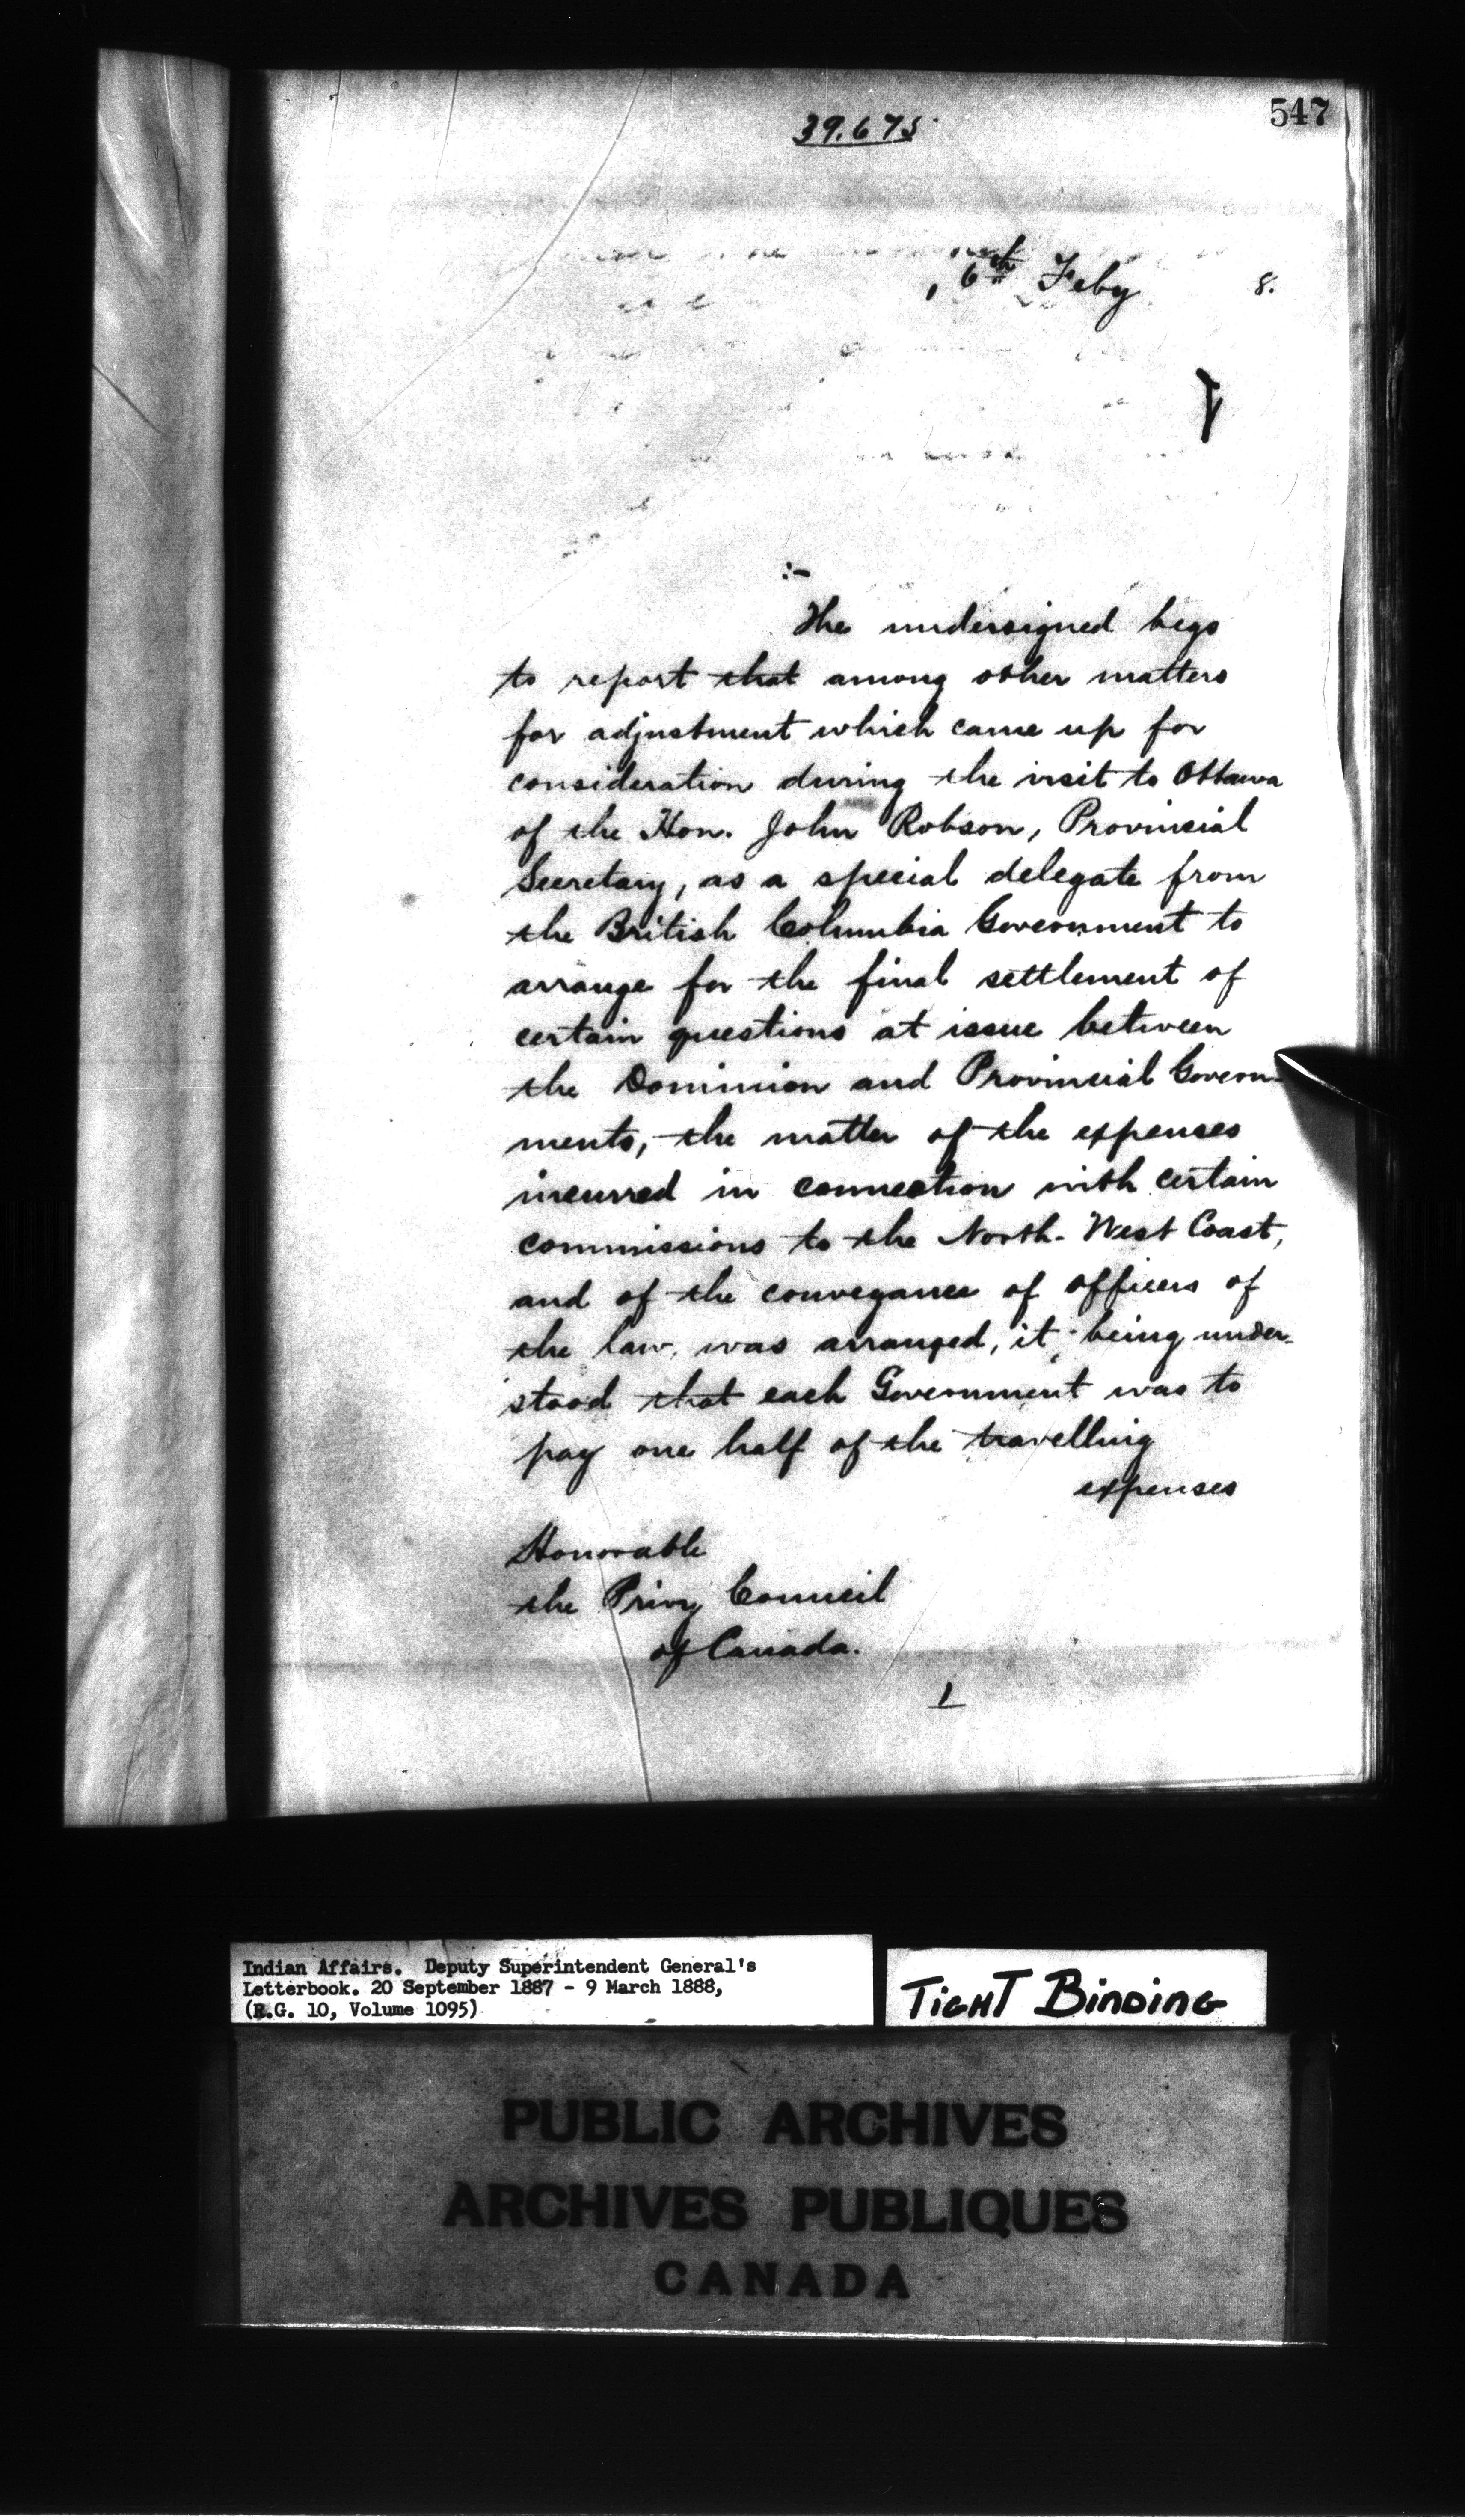 547
39.675
, 6th Feby 8.
:-
The undersigned begs
to report that among other matters
for adjustment which came up for
consideration during the visit to Ottawa
of the Hon. John Robson, Provincial
Secretary, as a special delegate from
the British Columbia Government to
arrange for the final settlement of
certain questions at issue between
the Dominion and Provincial Govern-
ments, the matter of the expenses
incurred in connection with certain
commissions to the North-West Coast,
and of the conveyance of officers of
the law, was arranged, it being under-
stood that each Government was to
pay one half of the travelling
expenses
Honorable
the Privy Council
of Canada.
1
Indian Affairs. Deputy Superintendent General's
Letterbook. 20 September 1887 - 9 March 1888,
(R.G. 10, Volume 1095)
TIGHT BINDING
PUBLIC ARCHIVES
ARCHIVES PUBLIQUES
CANADA